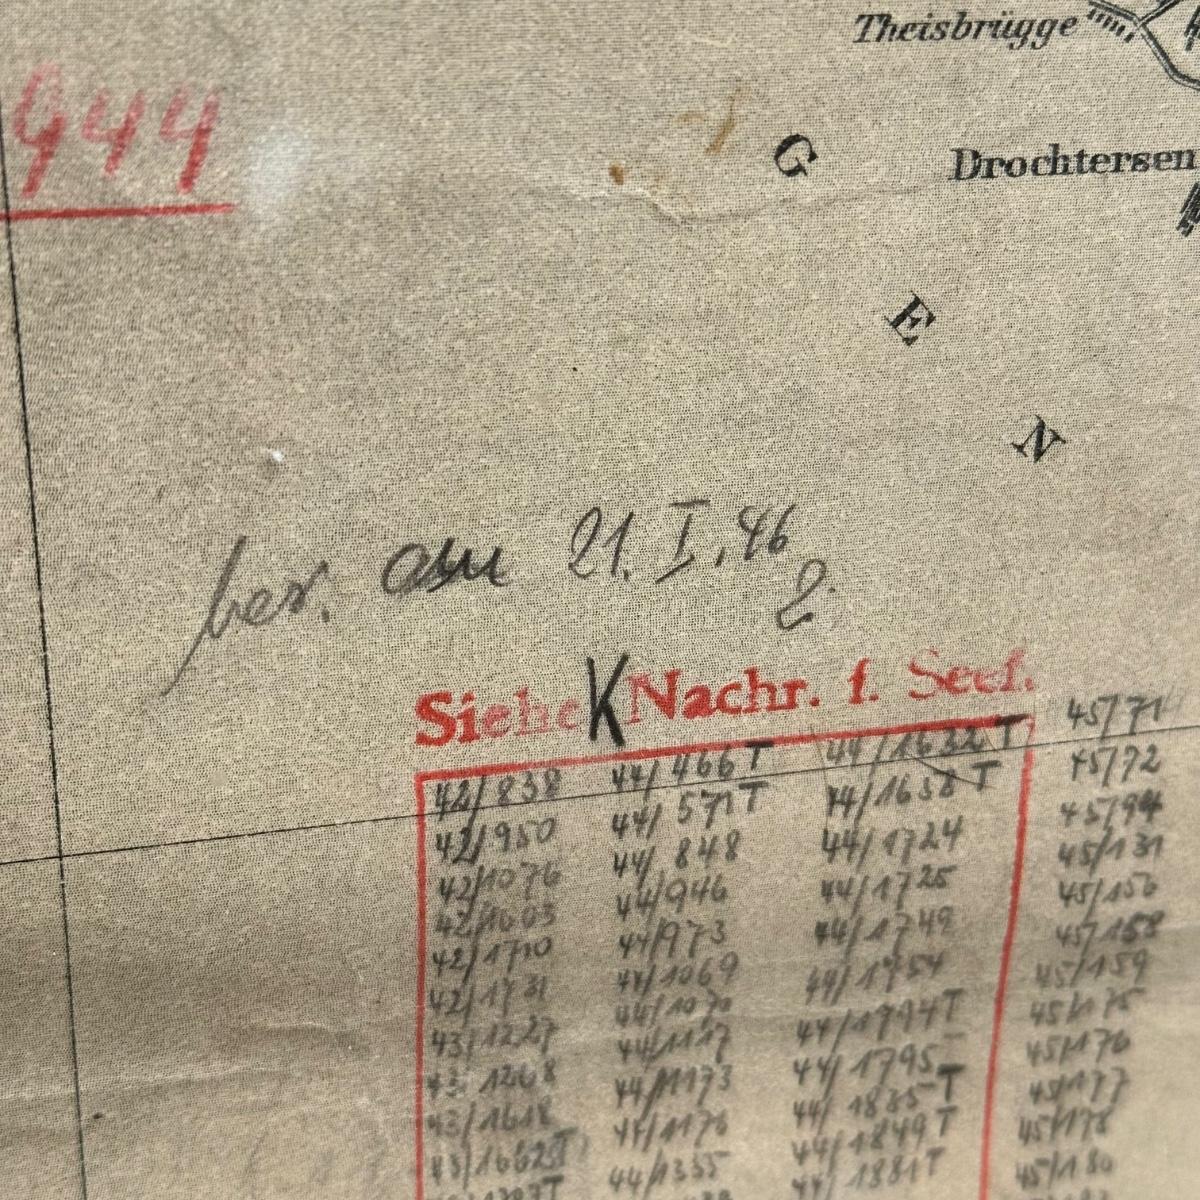 Theisbrügge
944
G
Drochtersen
E
N
ber. am 21. I. 46
Siehe K Nachr. f. Seef.
42/838 44/466T 44/1632T 45/71
42/950 44/571T 44/1658T 45/72
42/1076 44/848 44/1724 45/94
42/1603 44/946 44/1725 45/131
42/1710 44/973 44/1749 45/156
42/1731 44/1069 44/1754 45/158
43/1227 44/1070 44/1794T 45/159
43/1268 44/1117 44/1795 45/175
43/1618 44/1173 44/1835T 45/176
43/1662T 44/1176 44/1849T 45/177
44/1355 44/1881T 45/178
45/180